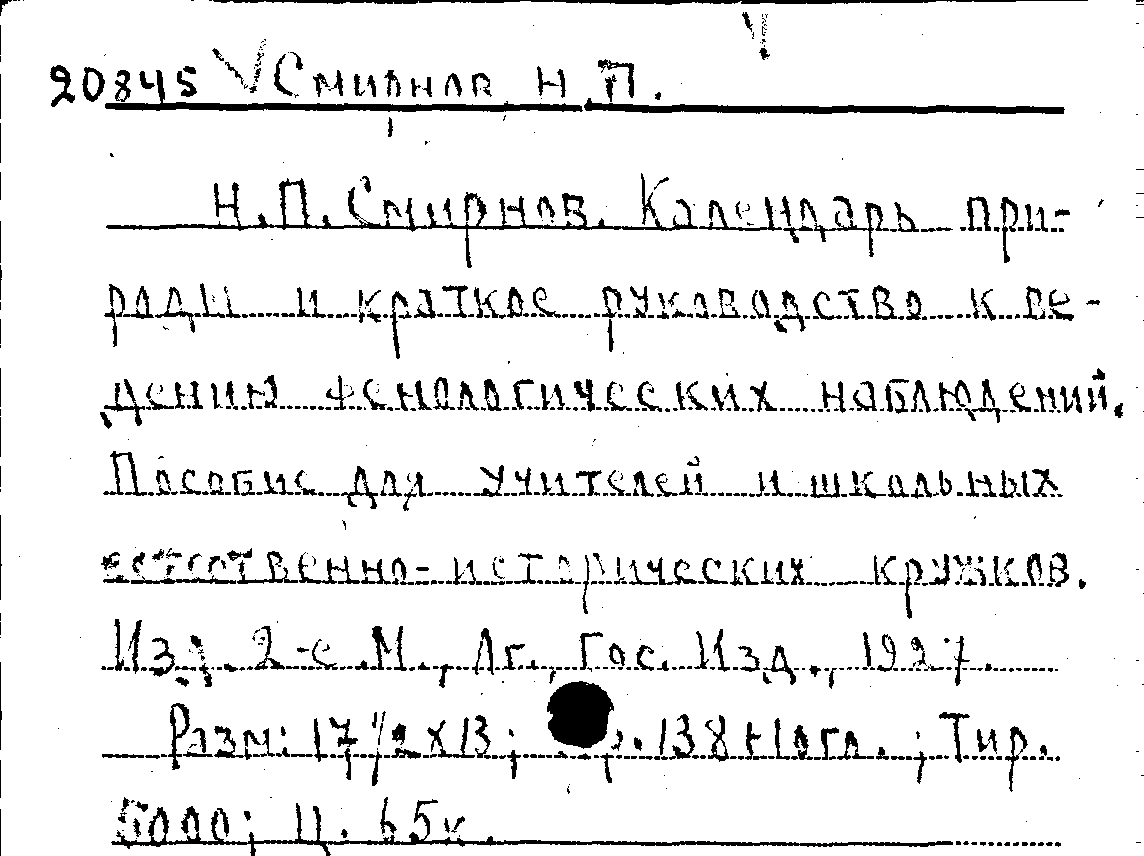 20845 Смирнов Н.П.
Н.П. Смирнов. Календарь при-
роды и краткое руководство к ве-
дению фенологических наблюдений.
Пособие для учителей и школьных
естественно-исторических кружков.
Изд. 2-е. М., Лг., Гос. Изд., 1927.
Разм: 17 1/2 х 13; 138+1огл.; Тир.
5000; Ц. 65к.